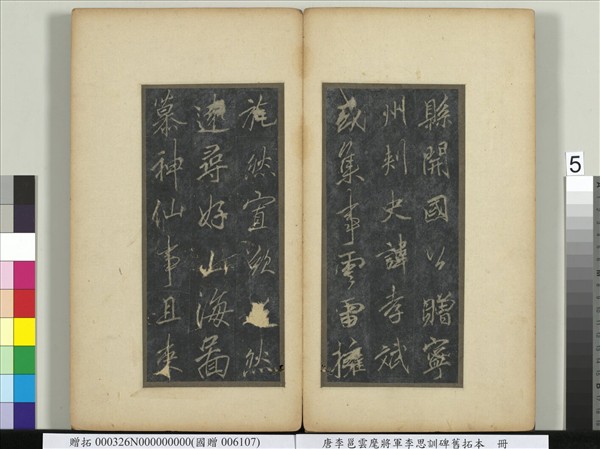 縣開國公贈寧
州刾史諱孝斌
或集事雲雷擁
施然宣然
遠尋好山海圖
慕神仙事且束
5
贈拓 000326N000000000(國贈 006107)
唐李邕雲麾將軍李思訓碑舊拓本 冊